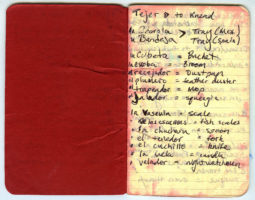 Tejer to Knead
la Charola > Tray (Mex)
la Bandeja Tray
la Cubeta = Bucket
escoba = Broom
recogedor = Dustpan
plumero = feather duster
trapeador = Mop
= sponge
la Vascula = scale
= fish scales
la cuchara = spoon
el tenedor = fork
el cuchillo = knife
la vela = candle
velador = nightwatchman